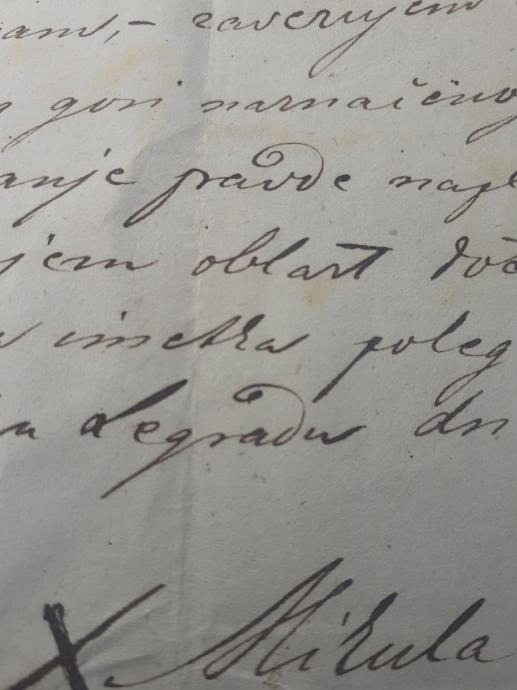 am,- zaverujem
gori naznačenog
anje pravde naj
jem oblast doć
imetka poleg
u Legradu dn
X Mikula